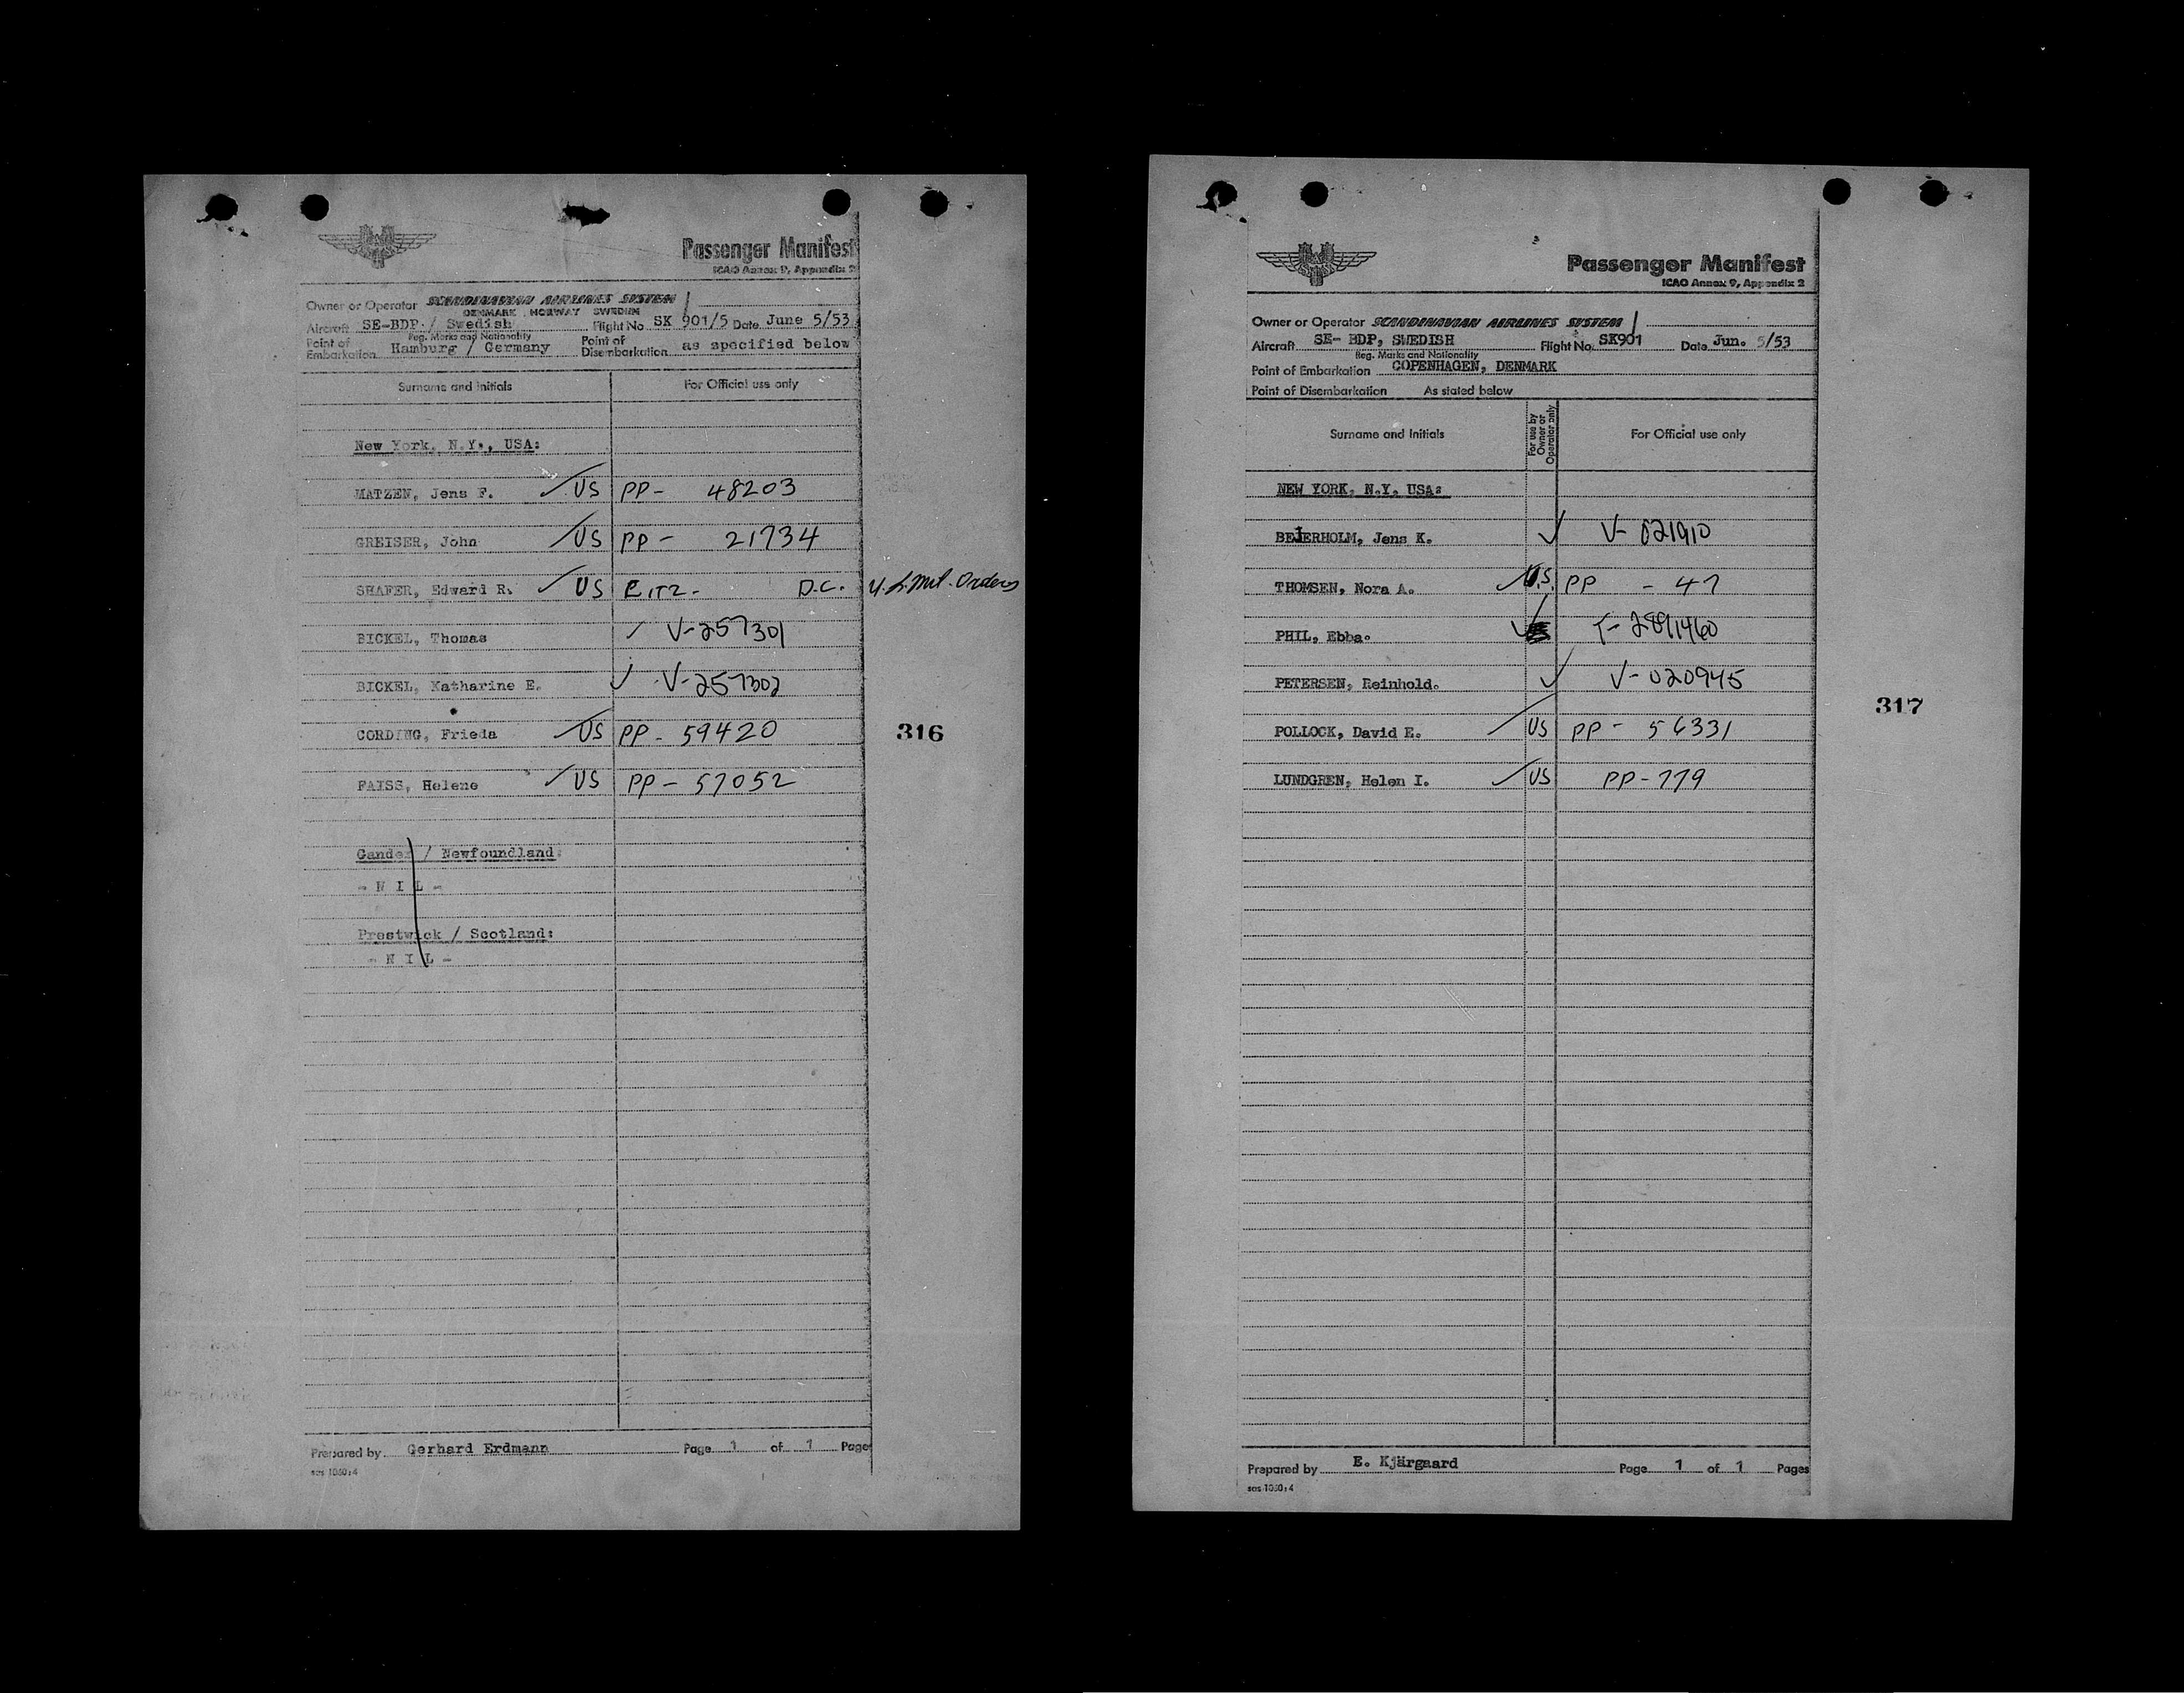 Passenger Manifest
ICAO Annex 9, Appendix 2
Owner or Operator SCANDINAVIAN AIRLINES SYSTEM
DENMARK NORWAY SWEDEN
Aircraft SE-BDP / Swedish Flight No SK 901/5 Date June 5/53
Reg. Marks and Nationality
Point of Embarkation Hamburg / Germany Point of Disembarkation as specified below
Surname and Initials For Official use only
New York, N.Y., USA:
MATZEN, Jens F. US PP- 48203
GREISER, John US PP- 21734
SHAFER, Edward R. US CITZ- D.C. U.S. Mil. Orders
BICKEL, Thomas V-257301
BICKEL, Katharine E. V-257302
CORDING, Frieda US PP- 59420
316
FAISS, Helene US PP- 57052
Gander / Newfoundland:
- N I L -
Prestwick / Scotland:
- N I L -
Prepared by Gerhard Erdmann Page 1 of 1 Page
sas 1050:4
Passenger Manifest
ICAO Annex 9, Appendix 2
Owner or Operator SCANDINAVIAN AIRLINES SYSTEM
Aircraft SE- BDP, SWEDISH Flight No. SK901 Date Jun. 5/53
Reg. Marks and Nationality
Point of Embarkation COPENHAGEN, DENMARK
Point of Disembarkation As stated below
Surname and Initials For use by Owner or Operator only For Official use only
NEW YORK, N.Y. USA:
BEJERHOLM, Jens K. V- 021910
THOMSEN, Nora A. U.S. PP - 47
PHIL, Ebba. T-2891460
PETERSEN, Reinhold. V-020945
317
POLLOCK, David E. US PP- 56331
LUNDGREN, Helen I. US PP-779
Prepared by E. Kjärgaard Page 1 of 1 Pages
sas 1050:4